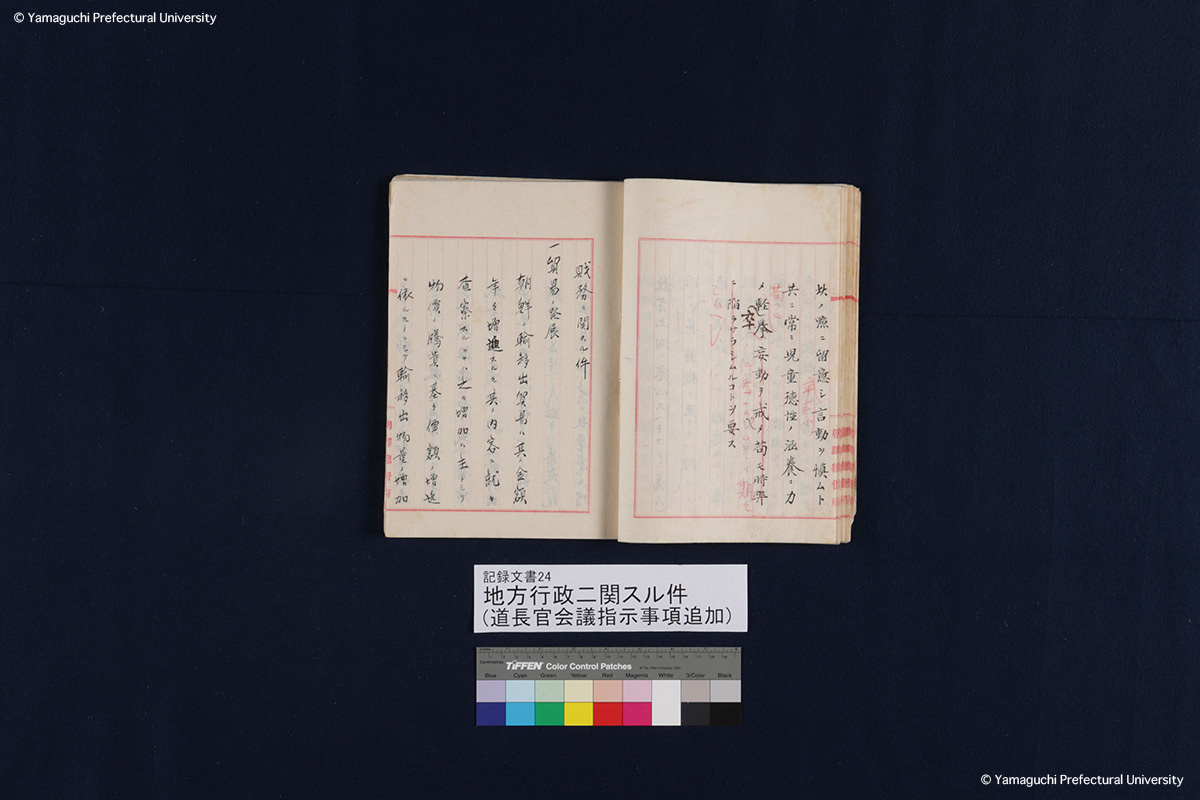 © Yamaguchi Prefectural University
此ノ点ニ留意シ言動ヲ慎ムト
共ニ常ニ児童徳性ノ涵養ニカ
メ軽挙妄動ヲ戒メ苟モ時弊
ニ陥ラザラシムルコトヲ要ス
財務ニ関スル件
一貿易ノ発展
朝鮮ノ輸移出貿易ハ其ノ金額
年々増進スルモ其ノ内容ニ就キ
査察スルトキハ之カ増加ハ主トシテ
物価ノ騰貴ニ基ク価額ノ増進
ニ依ルモノニシテ輸移出物量ノ増加
記録文書24
地方行政ニ関スル件
(道長官会議指示事項追加)
Centimetres
TIFFEN Color Control Patches
Blue Cyan Green Yellow Red Magenta White 3/Color Black
© Yamaguchi Prefectural University